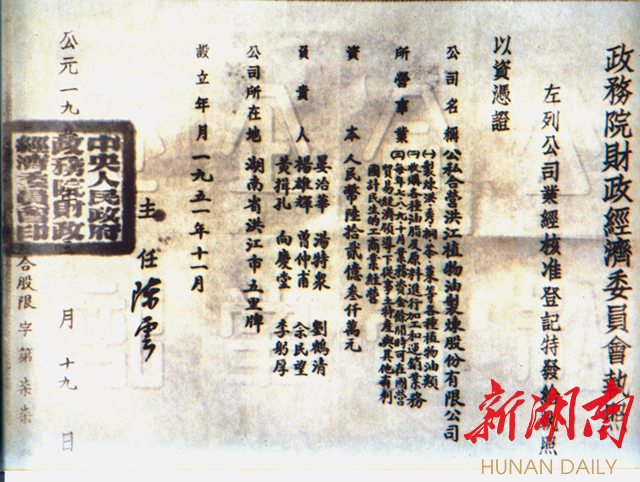 政務院財政經濟委員會執照
左列公司業經核准登記特發給執照
以資憑證
公司名稱 公私合營洪江植物油製煉股份有限公司
所營事業 (一)製煉洪、秀、桐、茶、菜等各種植物油類
(二)收購各種油脂及原料進行加工和運銷業務
(三)每年七八九十月業務資金餘閒時可在國營
貿易經濟領導下從事土特產與其他有利
國計民生的工商業經營
資本 人民幣陸拾貳億叁仟萬元
負責人 晏治華 湯特泉 劉鶴清
楊雄輝 曾仲甫 佘民望
黃揖孔 向慶堂 李躬厚
公司所在地 湖南省洪江市五里牌
設立年月 一九五一年十一月
主任 陳雲
中央人民政府
政務院財政
經濟委員會印
公元一九 月十九日
合股限字第柒柒
新湖南
HUNAN DAILY